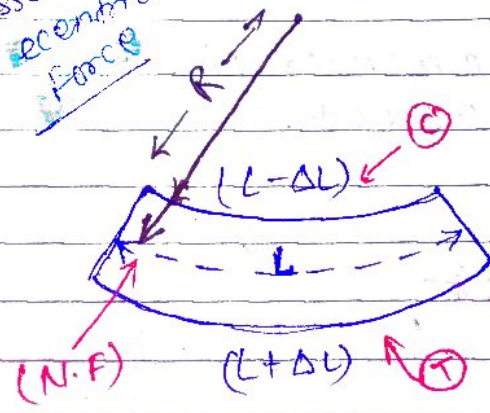 ecentri
Force
R
(L-ΔL)
C
L
(N.F)
(L+ΔL)
T